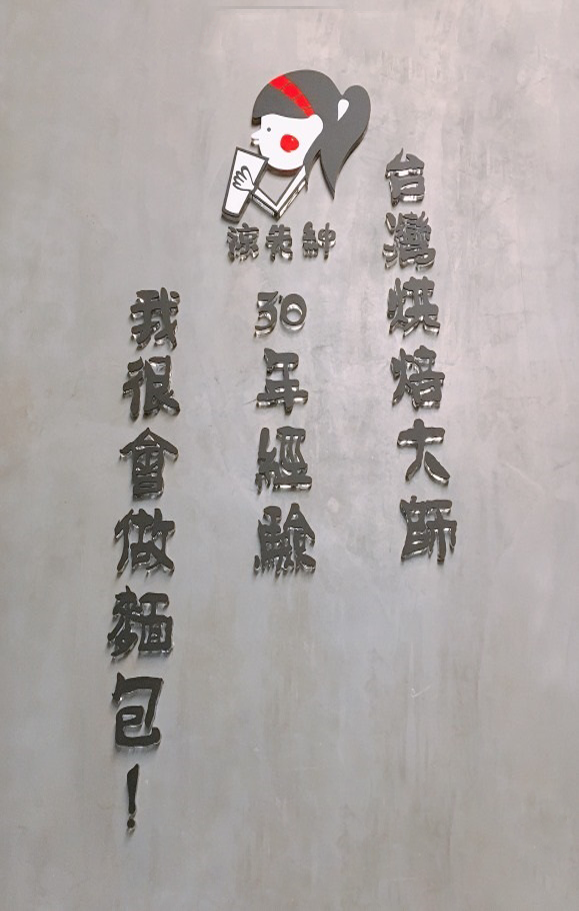 台灣烘焙大師
30年經驗
我很會做麵包！